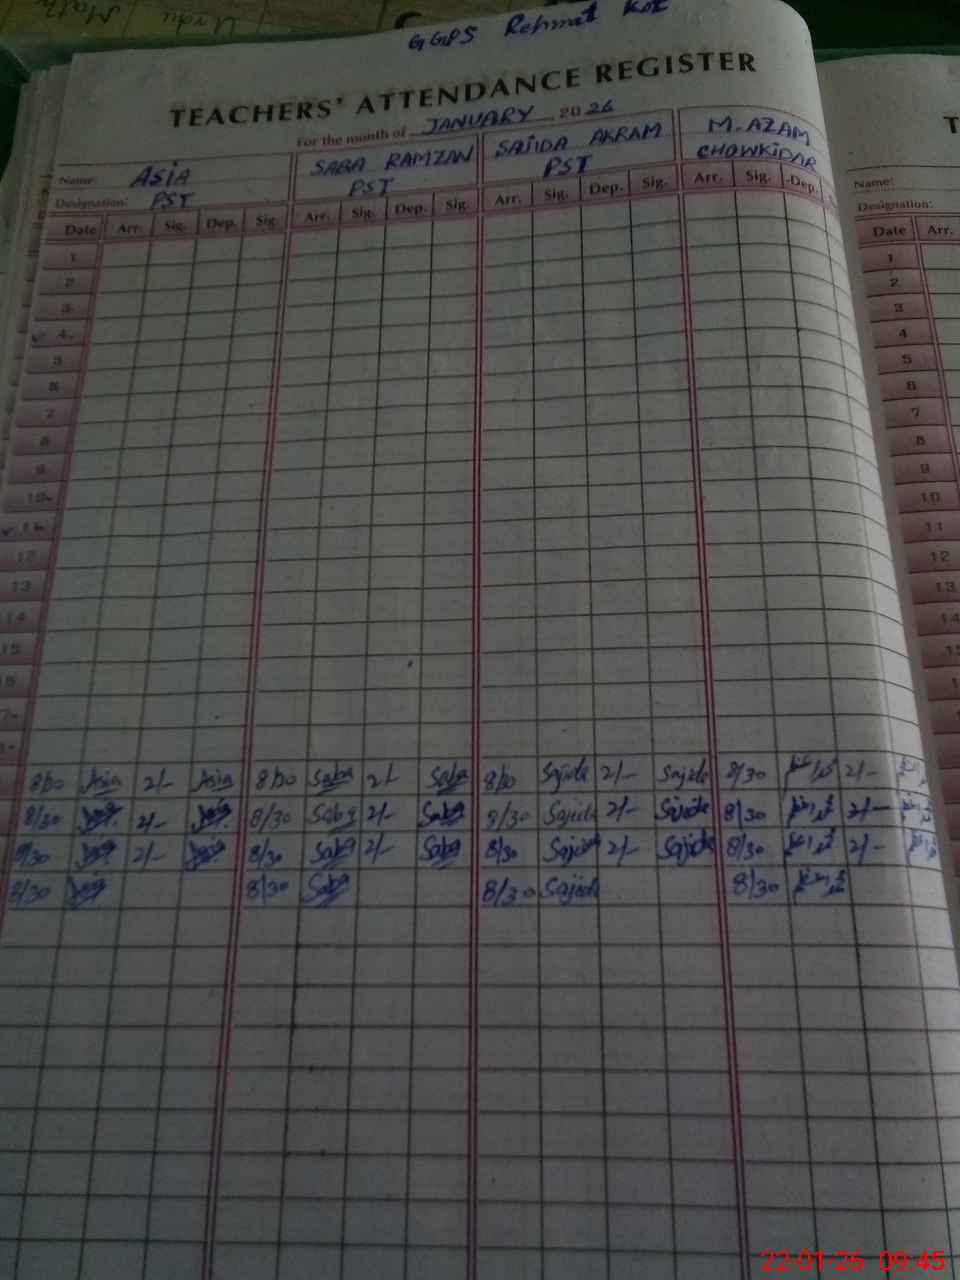 Math Urdu
GGPS Rehmat Kot
TEACHERS' ATTENDANCE REGISTER
For the month of JANUARY 2026
Name: ASIA SABA RAMZAN SAJIDA AKRAM M. AZAM
Designation: PST PST PST CHOWKIDAR
Date Arr. Sig. Dep. Sig. Arr. Sig. Dep. Sig. Arr. Sig. Dep. Sig. Arr. Sig. Dep.
1
2
3
4
5
6
7
8
9
10
11
12
13
14
15
8/30 Asia 2/- Asia 8/30 Saba 2/- Saba 8/30 Sajida 2/- Sajida 8/30 2/-
8/30 2/- 8/30 Saba 2/- Saba 8/30 Sajida 2/- Sajida 8/30 2/-
8/30 2/- 8/30 Saba 2/- Saba 8/30 Sajida 2/- Sajida 8/30 2/-
8/30 8/30 Saba 8/30 Sajida 8/30
T
Name:
Designation:
Date Arr.
1
2
3
4
5
6
7
8
9
10
11
12
13
14
22-01-26 09:45